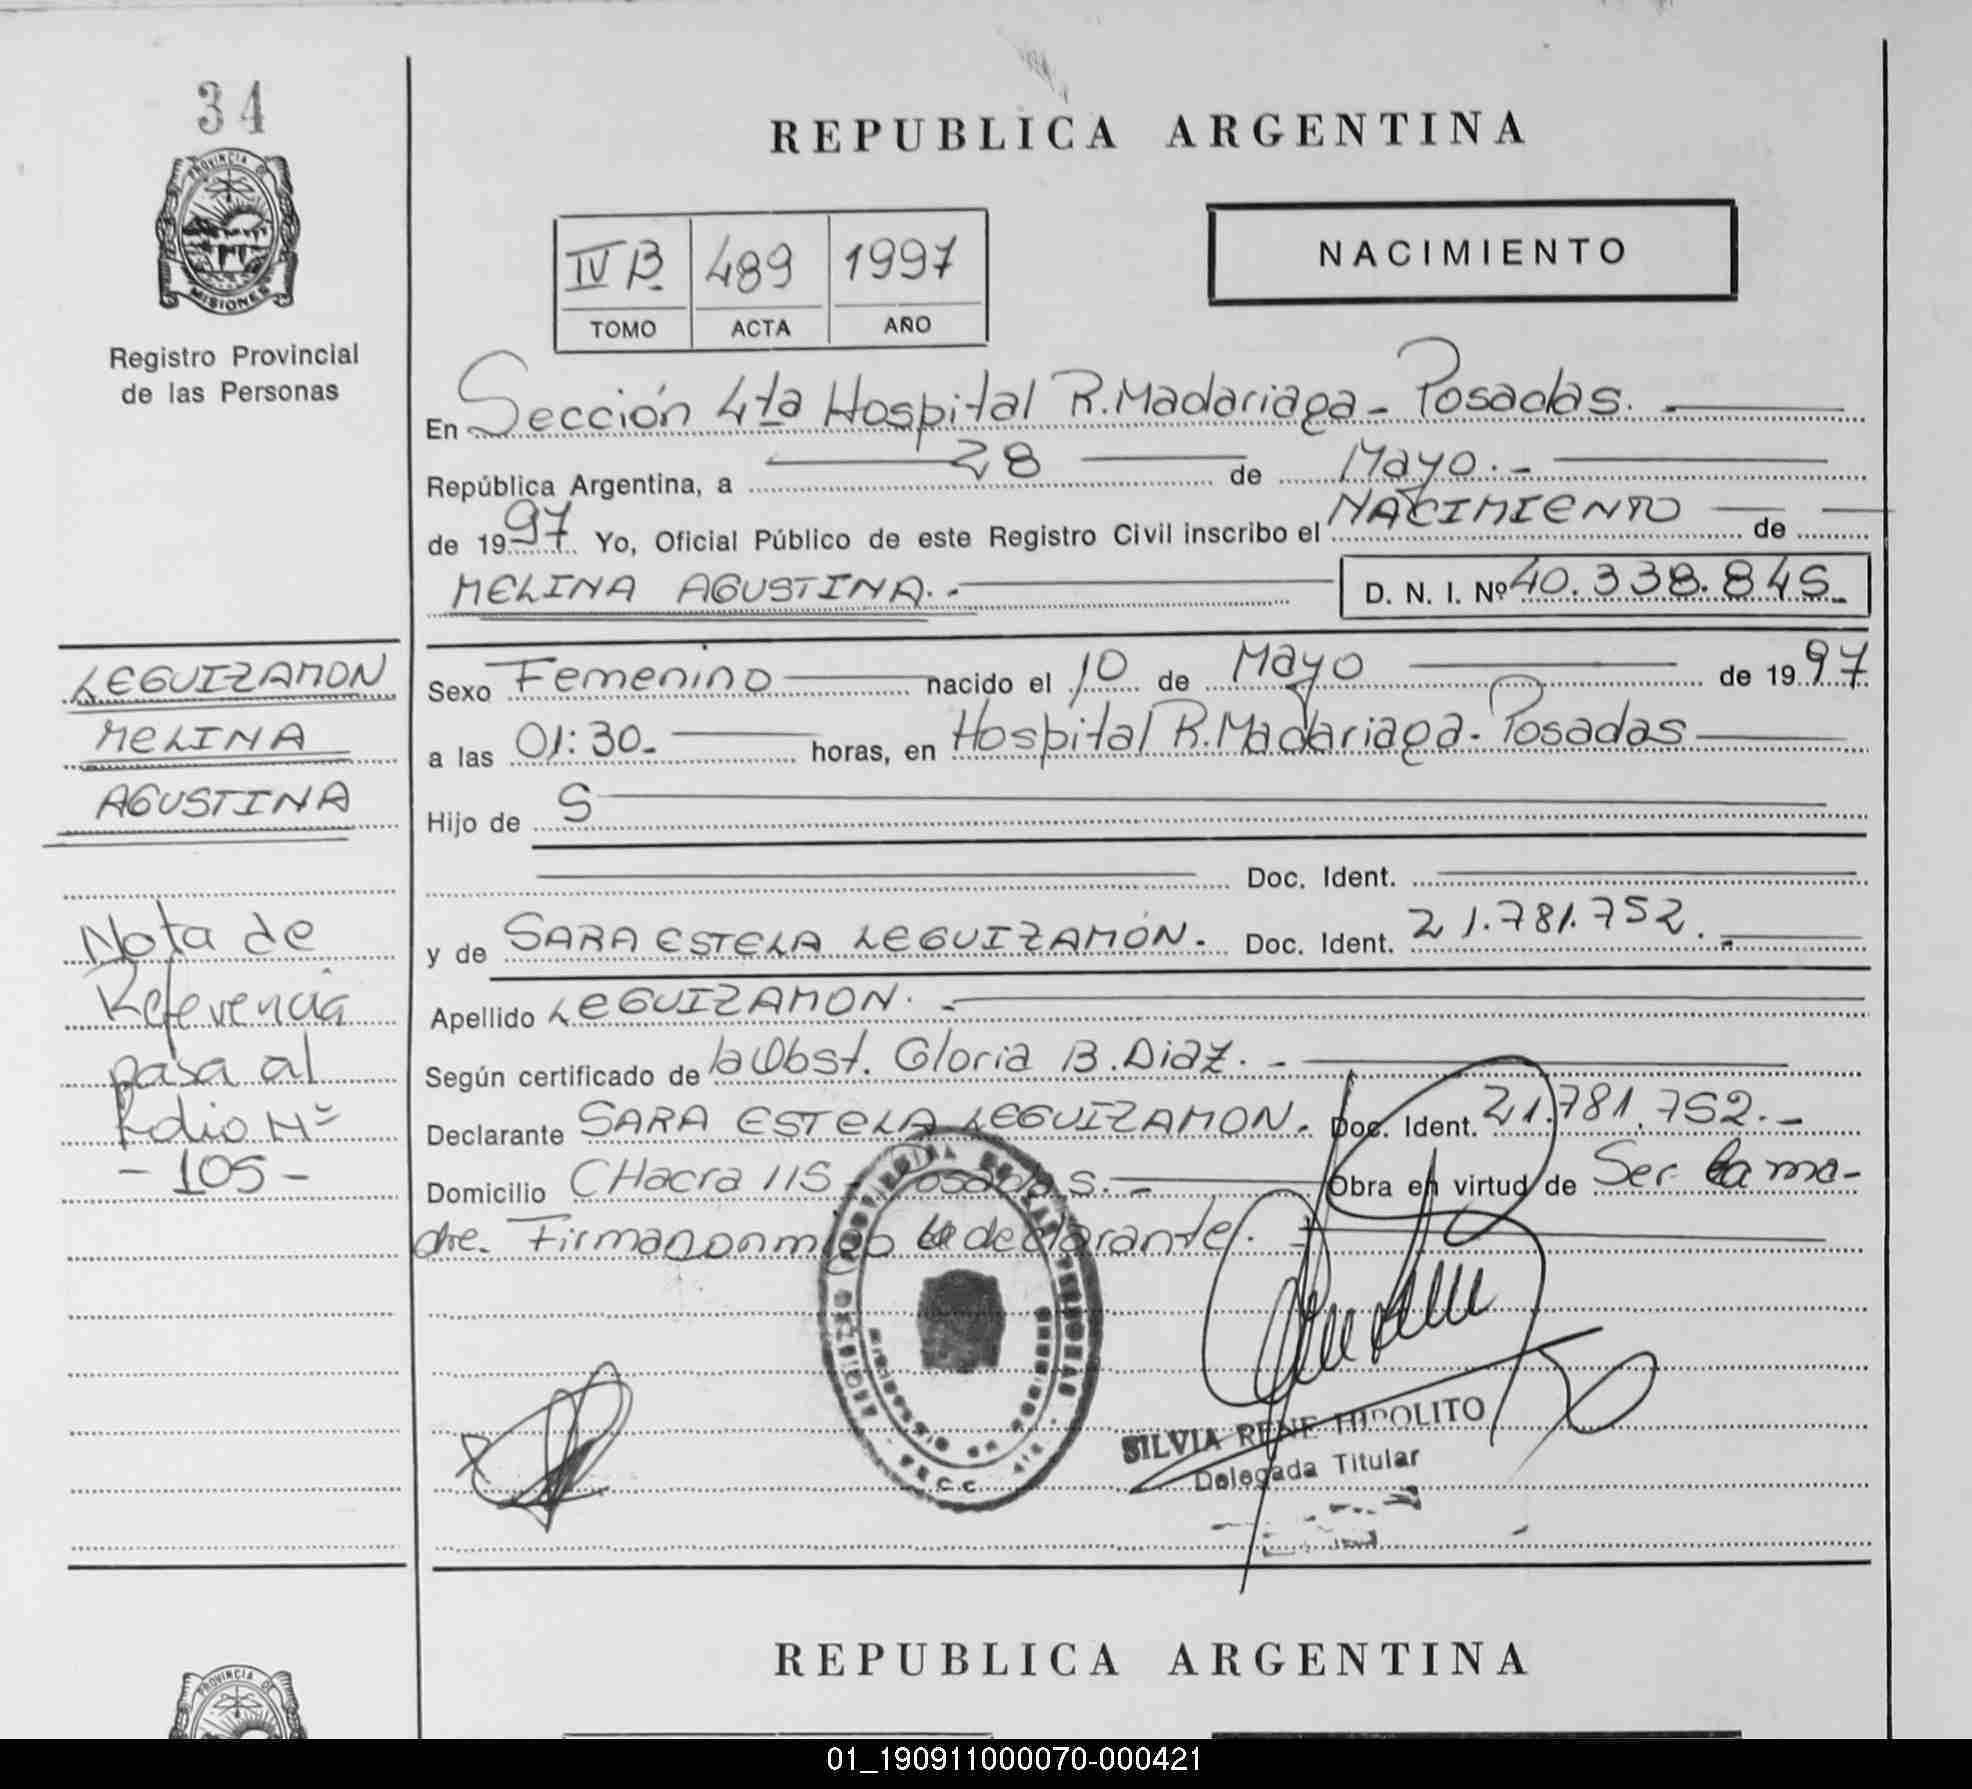 34
PROVINCIA DE
MISIONES
Registro Provincial
de las Personas
LEGUIZAMON
MELINA
AGUSTINA
Nota de
Referencia
pasa al
Folio Nº
- 105 -
REPUBLICA ARGENTINA
IV B 489 1997
TOMO ACTA AÑO
NACIMIENTO
En Sección 4ta Hospital R. Madariaga - Posadas.
República Argentina, a 28 de Mayo.-
de 1997 Yo, Oficial Público de este Registro Civil inscribo el NACIMIENTO de
MELINA AGUSTINA.- D. N. I. Nº 40.338.845.-
Sexo Femenino nacido el 10 de Mayo de 1997
a las 01:30.- horas, en Hospital R. Madariaga - Posadas
Hijo de S
Doc. Ident.
y de SARA ESTELA LEGUIZAMÓN. Doc. Ident. 21.781.752.-
Apellido LEGUIZAMON.-
Según certificado de la Obst. Gloria B. Diaz.-
Declarante SARA ESTELA LEGUIZAMON. Doc. Ident. 21.781.752.-
Domicilio CHacra 115 - Posadas.- Obra en virtud de Ser la ma-
dre. Firma conmigo la declarante.
SILVIA RENE HIPOLITO
Delegada Titular
REPUBLICA ARGENTINA
PROVINCIA DE
01_190911000070-000421